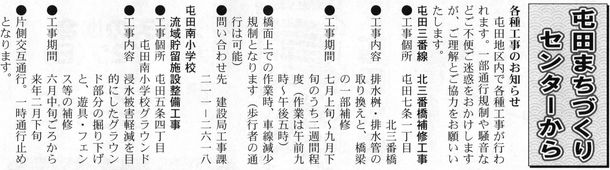 屯田まちづくり
センターから
各種工事のお知らせ
屯田地区内で各種工事が行わ
れます。一部通行規制や騒音な
どご不便ご迷惑をおかけします
が、ご理解とご協力をお願いい
たします。
屯田三番線 北三番橋補修工事
●工事個所 屯田七条一丁目
北三番橋
●工事内容 排水桝・排水管の
取り換えと、橋梁
の一部補修
●工事期間 七月上旬〜九月下
旬のうち二週間程
度（作業は午前九
時〜午後五時）
●橋面上での作業時、車線減少
規制となります（歩行者の通
行は可能）
●問い合わせ先 建設局工事課
二一一-二六一八
屯田南小学校
流域貯留施設整備工事
●工事個所 屯田五条四丁目
屯田南小学校グラウンド
●工事内容 浸水被害軽減を目
的にしたグラウン
ド部分の掘り下げ
と、遊具・フェン
ス等の補修
●工事期間 六月中旬ごろから
来年二月下旬
●片側交互通行。一時通行止め
となります。